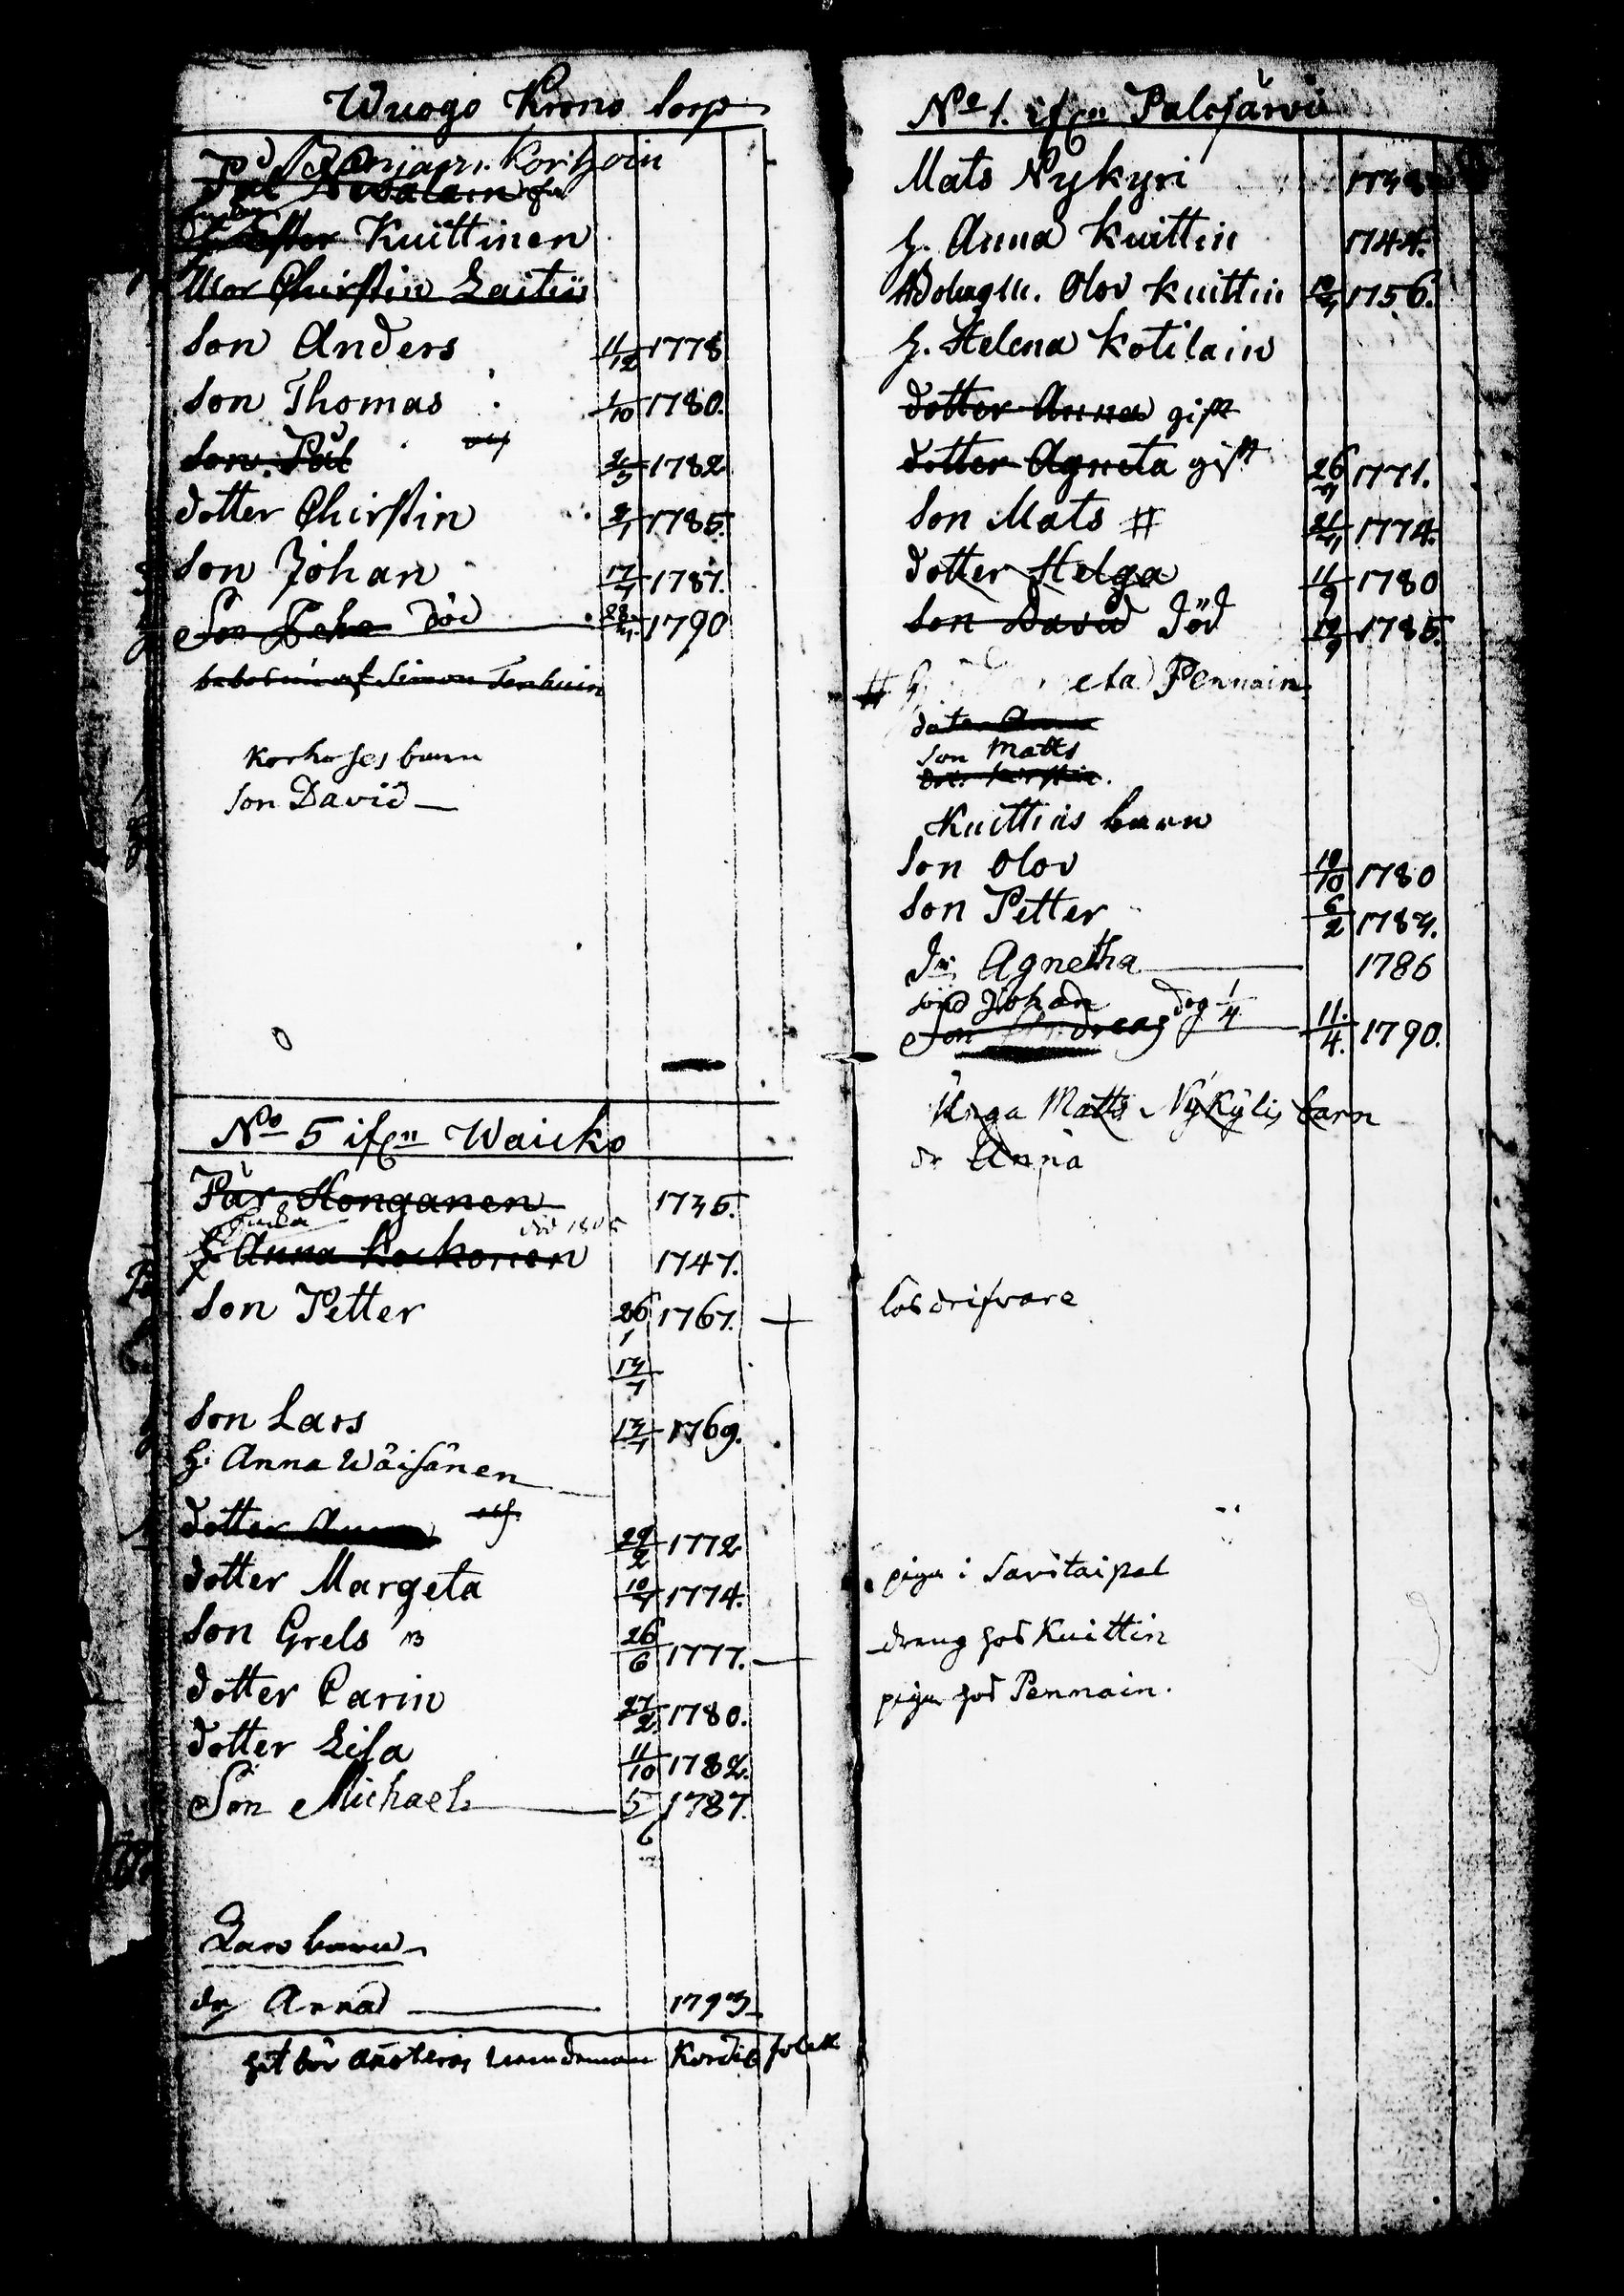 Wuogo Krono torp
Benjam. Korhoin
Pål
Kuittinen
Mor Chirstin Laitin
Son Anders 11/12 1778
Son Thomas 1/10 1780.
Son Pål 2/3 1782
dotter Chirstin 2/1 1785.
Son Johan 17/1 1787.
Son död 1790
af Simon Tenhuin
Korhoses barn
Son David
No 5 ifrn Waicko
Pär Honganen 1735.
Enka död
h. Anna Korhonen 1747.
Son Petter 26/1 1767.
Son Lars 1769.
h. Anna Wäisänen
dotter Anna 29/2 1772
dotter Margeta 10/7 1774.
Son Grels 26/6 1777.
dotter Carin 27/2. 1780.
dotter Lisa 11/10 1782.
Son Michael 5/6 1787.
Lars barn
dr Anna 1793
hit bör folck
No 1. ifrn Palojärvi
Mats Nykyri
h. Anna Kuittin 1744.
Olov Kuittin 1756.
h. Helena Kotilain
dotter Anna gift
dotter Agneta gift 1771.
Son Mats # 1774.
dotter Helga 11/9 1780
Son David död 1785.
# h. eta Pennain
doter Anna
Son Matts
Kuittins barn
Son Olov 10/10 1780
Son Petter 6/2
dr Agnetha 1786
Johan
Son Andreas dog 1/4 11./4. 1790.
Unga Matts Nykyris barn
dr Anna
lösdrifvare
piga i Savitaipal
dräng hos Kuittin
piga hos Pennain.